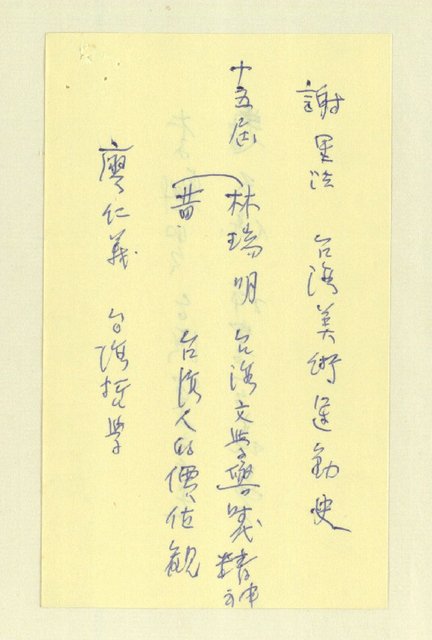 謝里法 台湾美術運動史
十五屆 林瑞明 台湾文學與時代精神
黃 台湾人的價值観
廖仁義 台湾哲學